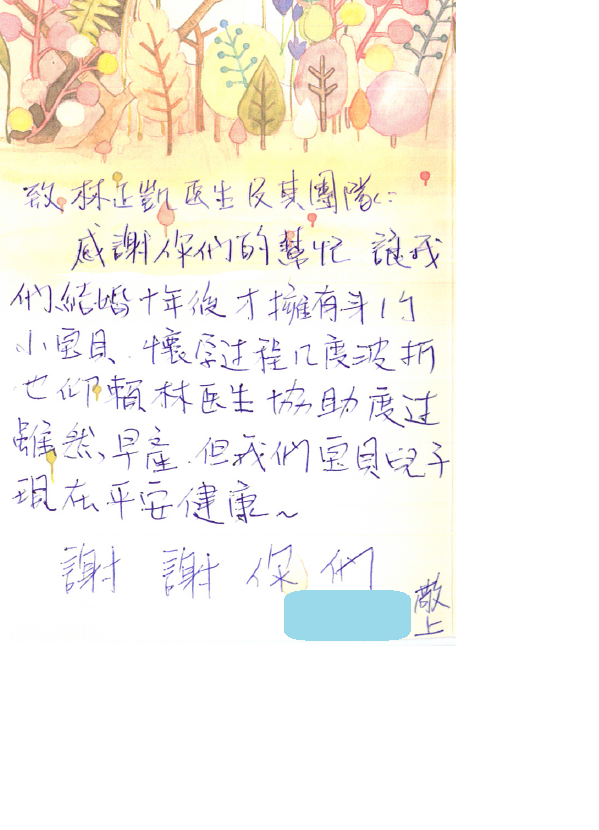 致 林正凱医生及其團隊:
感謝你們的幫忙 讓我
們結婚十年後才擁有第1个
小宝貝.懷孕过程几度波折
也仰賴林医生協助度过
雖然早產.但我們宝貝兒子
現在平安健康~
謝謝你們
敬上